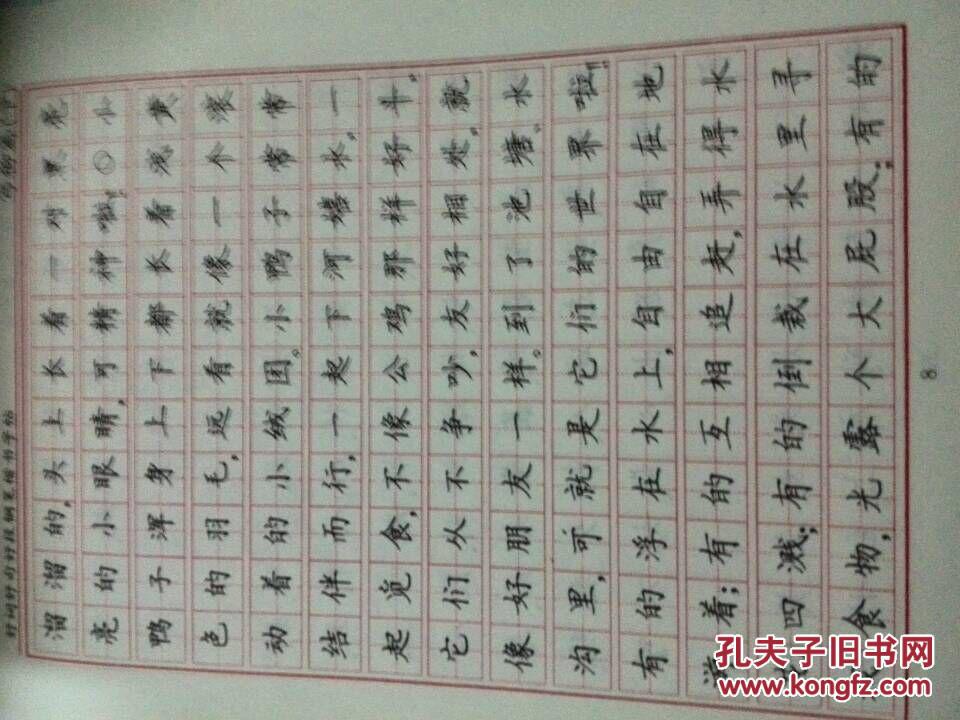 好词好句好段钢笔楷书字帖
溜溜的,头上长着一对黑亮
亮的小眼睛,可精神啦!〇小
鸭子浑身上下都长着浅黄
色的羽毛,远看就像一个滚
动着的小绒团。小鸭子常常
结伴而行,一起下河嬉水,一
起觅食,不像公鸡那样好斗。
它们从不争吵,友好相处,就
像好朋友一样。到了池塘、水
沟里,可就是它们的世界啦!
有的浮在水上,自由自在地
游着;有的互相追赶,弄得水
四溅;有的倒栽在水里寻
食物,光露个大屁股;有的
8
孔夫子旧书网
www.kongfz.com